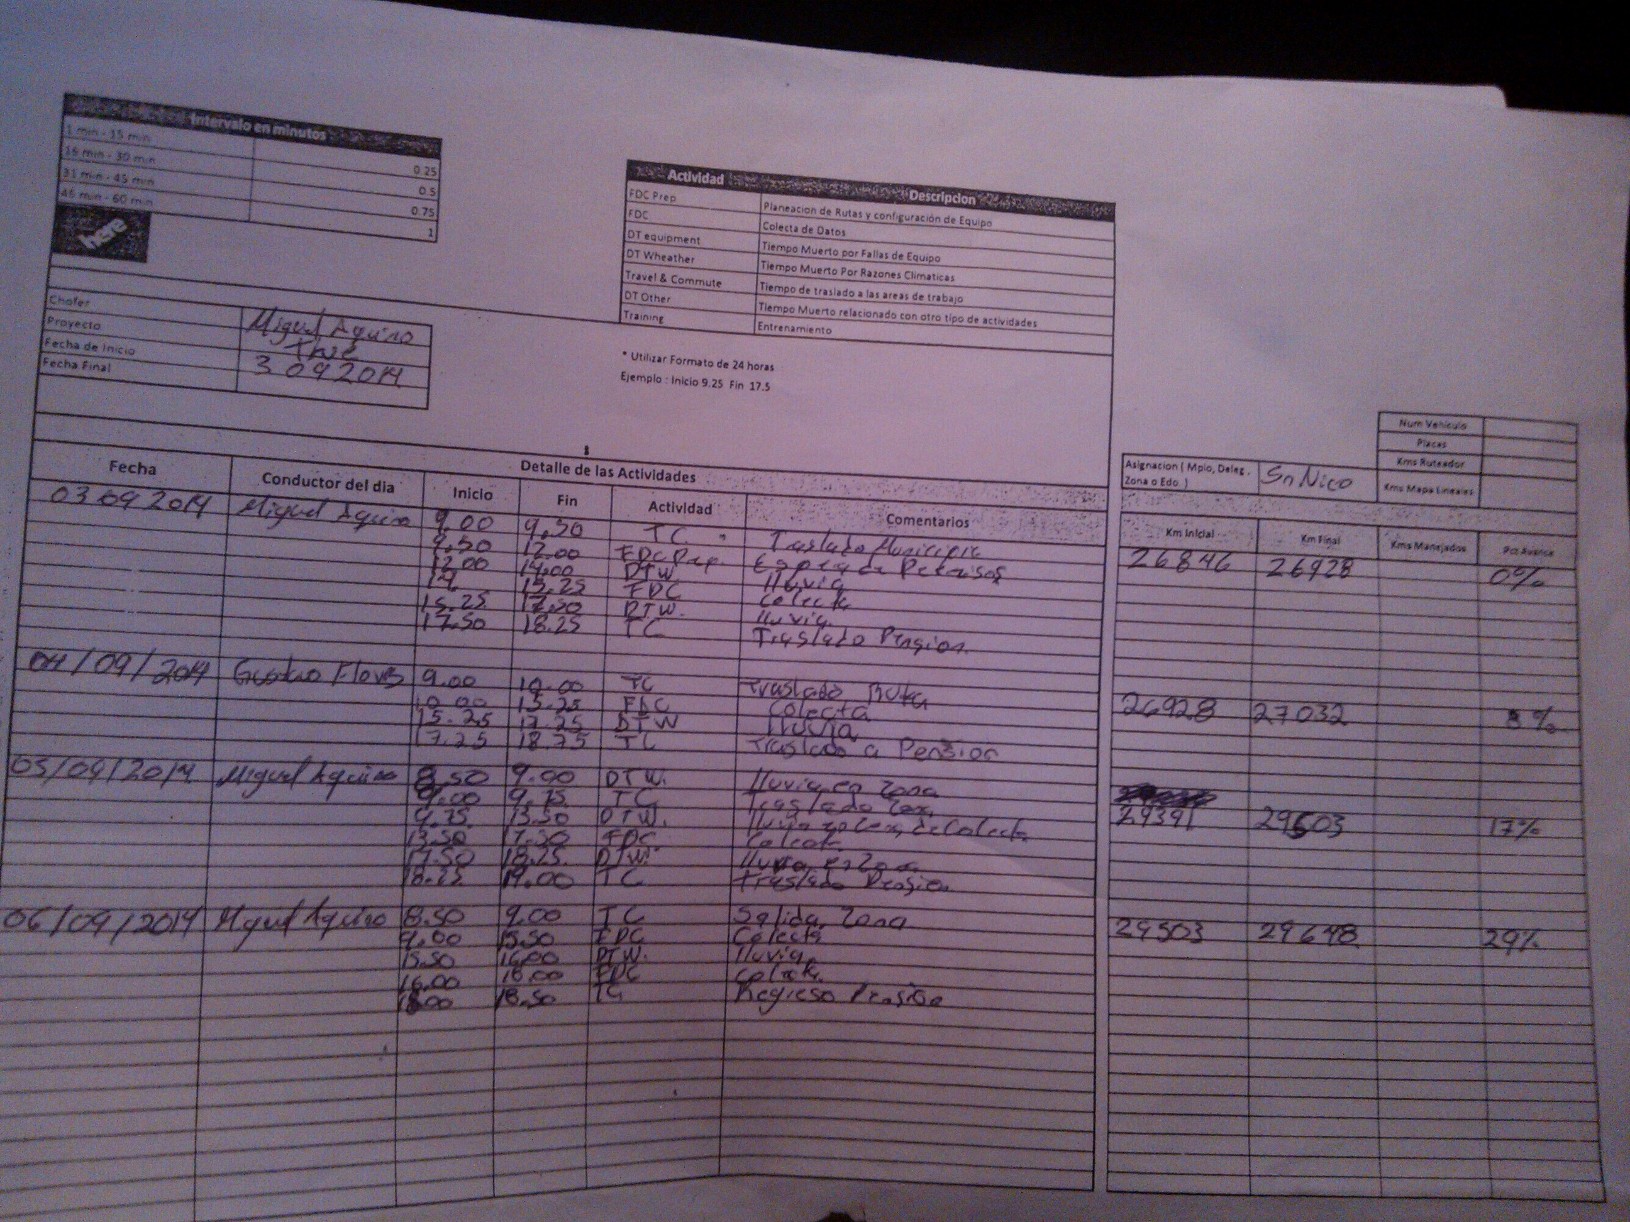 Intervalo en minutos
1 min - 15 min 0.25
16 min - 30 min 0.5
31 min - 45 min 0.75
46 min - 60 min 1
here
Actividad Descripcion
FDC Prep Planeacion de Rutas y configuración de Equipo
FDC Colecta de Datos
DT equipment Tiempo Muerto por Fallas de Equipo
DT Wheather Tiempo Muerto Por Razones Climaticas
Travel & Commute Tiempo de traslado a las areas de trabajo
DT Other Tiempo Muerto relacionado con otro tipo de actividades
Training Entrenamiento
Chofer Miguel Aquino
Proyecto
Fecha de Inicio 3 09 2014
Fecha Final
* Utilizar Formato de 24 horas
Ejemplo : Inicio 9.25 Fin 17.5
Num Vehiculo
Placas
Kms Ruteador
Kms Mapa Lineales
Asignacion ( Mpio, Deleg, Zona o Edo. ) Sn Nico
Detalle de las Actividades
Fecha Conductor del dia Inicio Fin Actividad Comentarios Km Inicial Km Final Kms Manejados Pct Avance
03 09 2014 Miguel Aquino 9.00 9.50 TC Traslado Municipio 26846 26928 0%
9.50 12.00 FDC Prep. Espera de Permisos
12.00 14.00 DTW lluvia
14 15.25 FDC Colecta
15.25 17.50 DTW. lluvia
17.50 18.25 TC Traslado Pension
04/09/2014 Gustavo Flores 9.00 10.00 TC Traslado Ruta 26928 27032 %
10.00 15.25 FDC Colecta
15.25 17.25 DTW lluvia
17.25 18.75 TC Traslado a Pension
05/09/2014 Miguel Aquino 8.50 9.00 DTW. lluvia en zona
9.00 9.75 TC Traslado Zona 29391 29503 17%
9.75 13.50 DTW. lluvia zona de Colecta
13.50 17.50 FDC Colecta
17.50 18.25 DTW. lluvia en Zona
18.25 19.00 TC Traslado Pension
06/09/2014 Miguel Aquino 8.50 9.00 TC Salida Zona 29503 29648 29%
9.00 15.50 FDC Colecta
15.50 16.00 DTW. lluvia
16.00 18.00 FDC Colecta
18.00 18.50 TC Regreso Pension